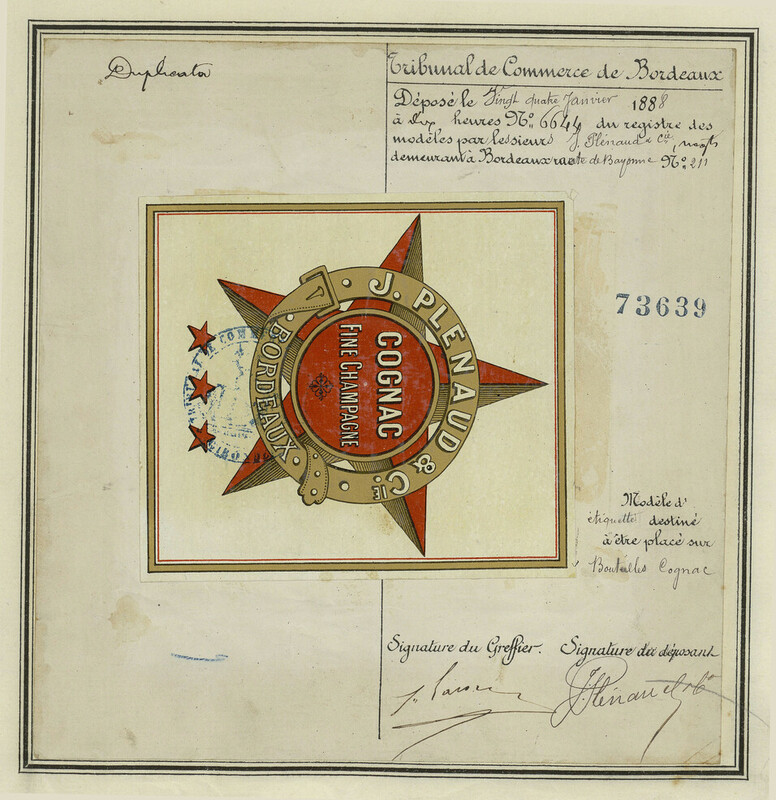 Duplicata
Tribunal de Commerce de Bordeaux
Déposé le Vingt quatre Janvier 1888
à dix heures N° 6644 du registre des
modèles par lessieurs J. Plénaud & Cie, negts
demeurant à Bordeaux route de Bayonne N° 211
J. PLENAUD & CIE
COGNAC
FINE CHAMPAGNE
BORDEAUX
73639
Modèle d'
étiquette destiné
à être placé sur
Bouteilles Cognac
Signature du Greffier. Signature du déposant
J. Plénaud & Cie